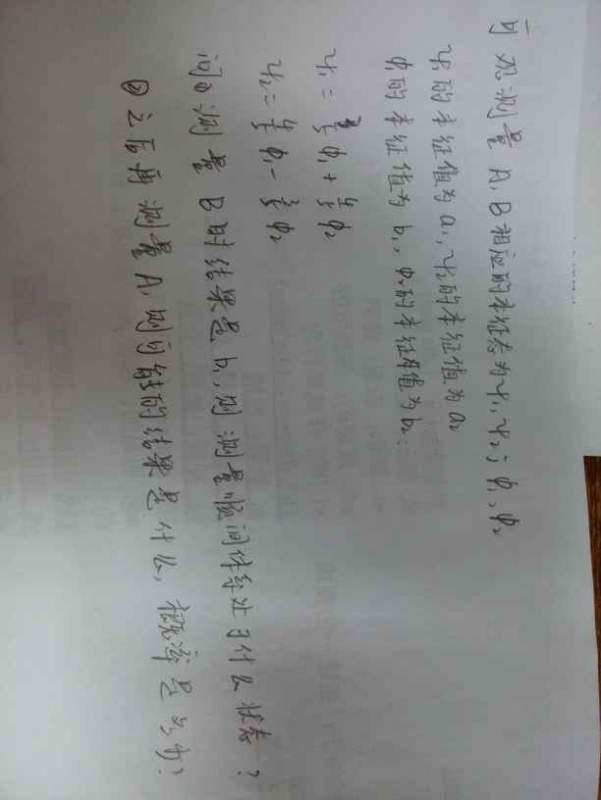 可观测量A,B相应的本征态为ψ₁,ψ₂;φ₁,φ₂
ψ₁的本征值为a₁,ψ₂的本征值为a₂
φ₁的本征值为b₁,φ₂的本征值为b₂.
ψ₁ = 3/5 φ₁ + 4/5 φ₂
ψ₂ = 4/5 φ₁ - 3/5 φ₂
问①测量B时结果是b₁,则测量瞬间体系处于什么状态?
②之后再测量A,则可能的结果是什么,概率是多少?